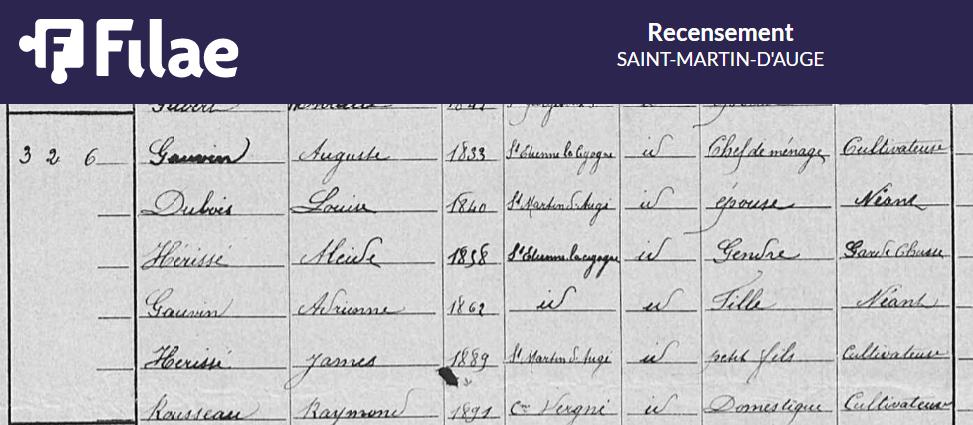 Filae
Recensement
SAINT-MARTIN-D'AUGE
3 2 6 Gauvin Auguste 1833 St Etienne la Cigogne id Chef de ménage Cultivateur
Dubois Louise 1840 St Martin d'Augé id épouse Néant
Hérissé Alcide 1858 St Etienne la cigogne id Gendre Garde Chasse
Gauvin Adrienne 1862 id id Fille Néant
Hérissé James 1889 St Martin d'Augé id petit fils Cultivateur
Rousseau Raymond 1891 Vergné id Domestique Cultivateur